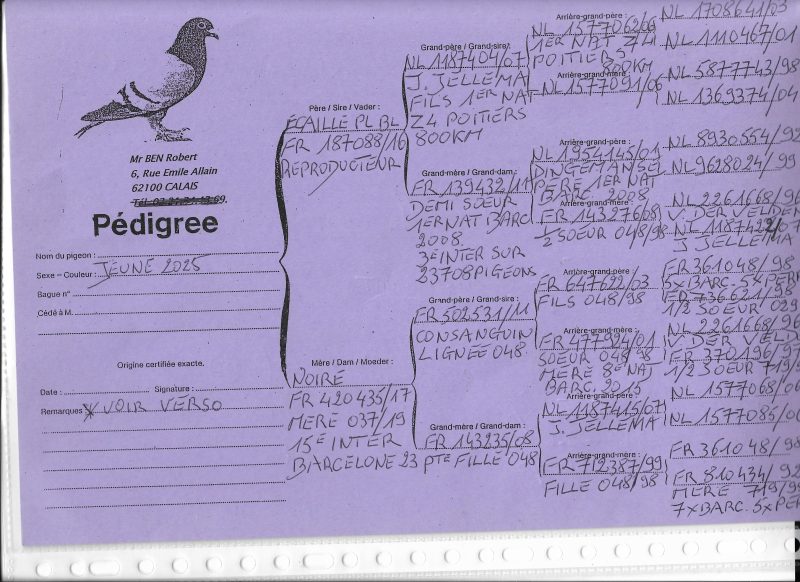 Mr BEN Robert
6, Rue Emile Allain
62100 CALAIS
Pédigree
Nom du pigeon :
JEUNE 2025
Sexe – Couleur :
Bague n°
Cédé à M.
Origine certifiée exacte.
Date : Signature :
Remarques VOIR VERSO
Père / Sire / Vader :
ECAILLE PL BL
FR 187088/16
REPRODUCTEUR
Mère / Dam / Moeder :
NOIRE
FR 420435/17
MERE 037/19
15E INTER
BARCELONE 23
Grand-père / Grand-sire :
NL 1187404/07
J. JELLEMA
FILS 1ER NAT
Z4 POITIERS
800KM
Grand-mère / Grand-dam :
FR 139432/11
DEMI SOEUR
1ER NAT BARC
2008.
3E INTER SUR
23708 PIGEONS
Grand-père / Grand-sire :
FR 502531/11
CONSANGUIN
LIGNEE 048
Grand-mère / Grand-dam :
FR 143235/08
PTE FILLE 048
Arrière-grand-père :
NL 1577062/06
1ER NAT Z4
POITIERS
800KM
Arrière-grand-mère :
NL 1577091/06
Arrière-grand-père :
NL 1954145/01
DINGEMANSE
PERE 1ER NAT
BARC 2008
Arrière-grand-mère :
FR 143276/08
1/2 SOEUR 048/98
Arrière-grand-père :
FR 647622/03
FILS 048/98
Arrière-grand-mère :
FR 477924/01
SOEUR 048/98
MERE 8E NAT
BARC. 2015
Arrière-grand-père :
NL 1187415/07
J. JELLEMA
Arrière-grand-mère :
FR 712387/99
FILLE 048/98
NL 1708641/03
NL 1110467/01
NL 5877743/98
NL 1369374/04
NL 8930554/92
NL 9628024/99
NL 2261668/96
V. DER VELDEN
NL 1187422/07
J JELLEMA
FR 361048/98
5XBARC. 5XPER
FR 736621/98
1/2 SOEUR 029
NL 2261668/96
V. DER VELD
FR 370196/97
1/2 SOEUR 719/9
NL 1577068/06
NL 1577085/06
FR 361048/98
FR 810434/92
MERE 719/99
7XBARC. 5XPER